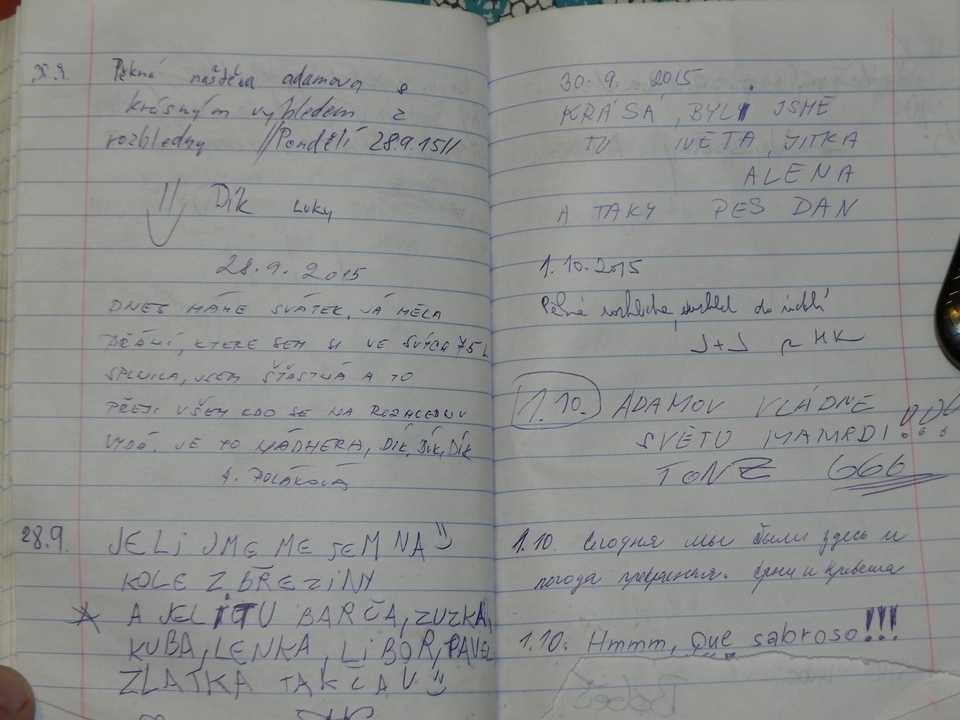 Pěkná naštěva adamova s
krásným vyhledem z
rozhledny //Pondělí 28.9.15//
Dík Luky
28.9.2015
DNES MÁME SVÁTEK, JÁ MĚLA
PŘÁNÍ, KTERÉ SEM SI VE SVÝCH 75 L
SPLNILA, JSEM ŠŤASTNÁ A TO
PŘEJI VŠEM KDO SE NA ROZHLEDNU
VYDÁ. JE TO NÁDHERA, DÍK, DÍK, DÍK
A. POLÁKOVÁ
28.9. JELI JME ME SEM NA
KOLE Z BŘEZINY
A JELI TU BARČA, ZUZKA,
KUBA, LENKA, LIBOR, PAVEL
ZLATKA TAK ČAU
30.9. 2015
KRÁSA, BYLY JSME
TU IVETA, JITKA
ALENA
A TAKY PES DAN
1.10.2015
Pěkná rozhledna, do
J+J HK
1.10. ADAMOV VLÁDNE
SVĚTU MAMRDI!
TONZ 666
1.10. Сегодня мы были здесь и
погода прекрасная. и
1.10. Hmmm, que sabroso!!!